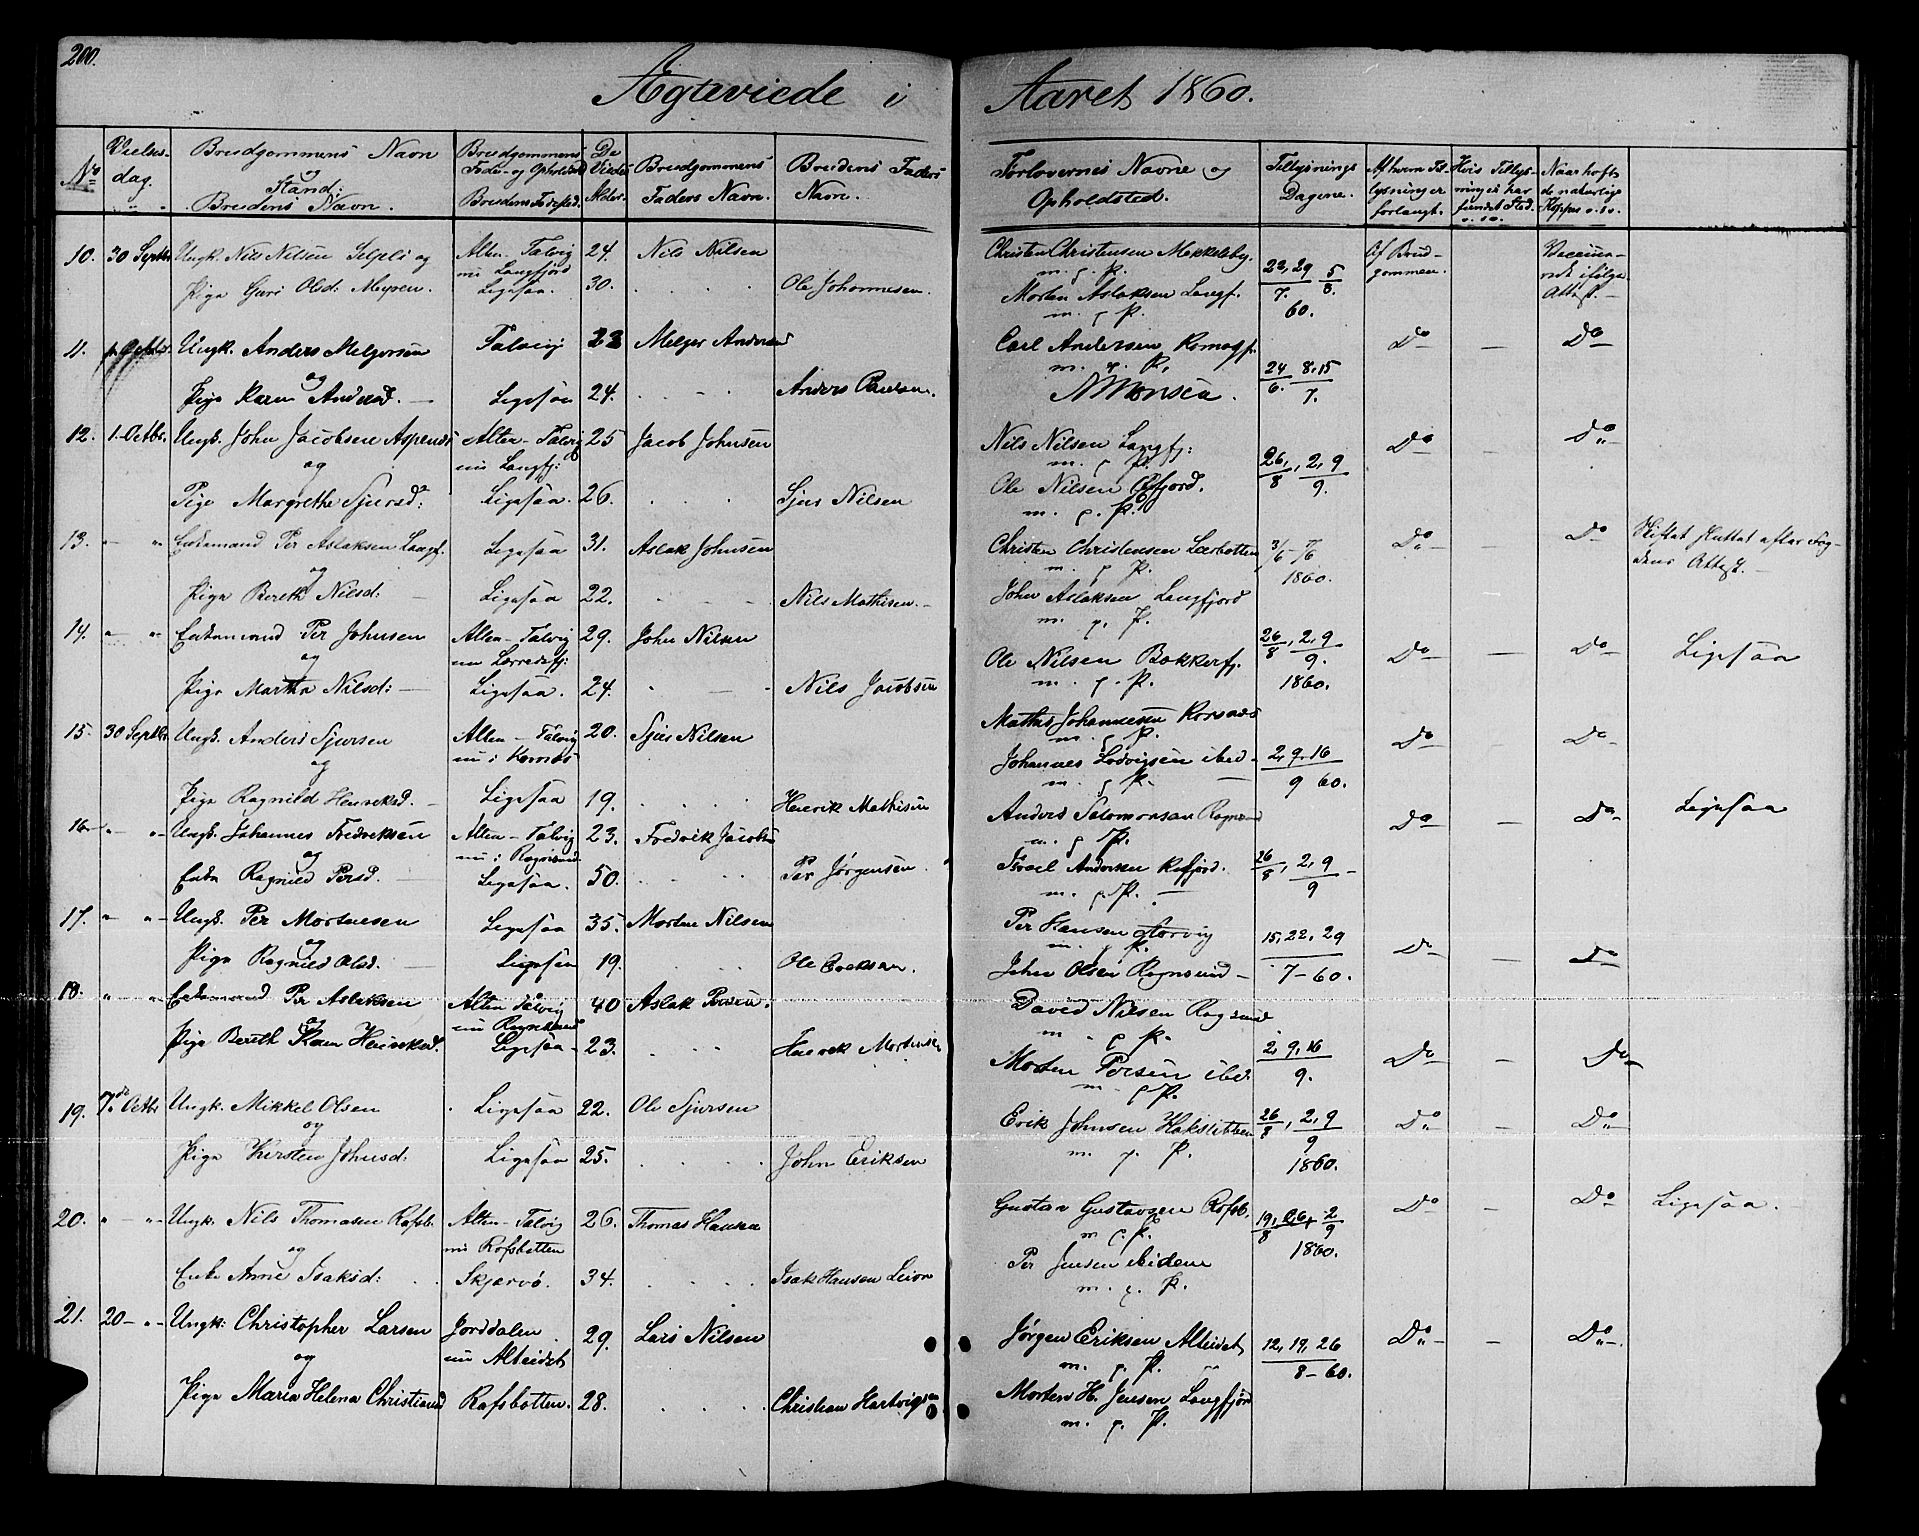 200.
Ægteviede i Aaret 1860.
No
Vielses-
dag.
Brudgommens Navn
og
Stand:
Brudens Navn.
Brudgommens
Føde- og Opholdsst
Brudens Fødested.
De
Viedes
Alder.
Brudgommens
Faders Navn.
Brudens Faders
Navn.
Forlovernes Navne og
Opholdsted.
Tillysnings
Dagene.
Af hvem Til
lysninger
forlangt.
Hvis Tillys-
ninger har
fundet Sted
Naar hoft
de naturlige
Kopper o.s.v.
10. 30 Septbr Ungk. Nils Nilsen og Alten-Talvig 24. Nils Nilsen Christen Christensen Mekkeleby. 22, 29 5/8 Af Brud-
nu Langfjord m. p. P. 7. gommen.
Pige Guri Olsd: Myren. Ligesaa. 30. Ole Johannesen. Morten Aslaksen Langf. 60. Attest.
m. p. P.
11. Octbr. Ungk. Anders Melgersen Talvig 22 Melger Anders Carl Andersen Komagf. 24/6. 8, 15/7. Do Do
og m. p. P.
Pige Karen Andersd. Ligesaa 24. Anders Paulsen. Monsen.
12. 1. Octbr. Ungk. John Jacobsen Alten-Talvig 25 Jacob Johnsen Nils Nilsen Langfj: 26/8, 2, 9/9. Do Do
og nu Langfj: m. p. P.
Pige Margrethe Sjursd: Ligesaa. 26. Sjur Nilsen Ole Nilsen
m. p. P.
13. " Enkemand Per Aslaksen Langf. Ligesaa 31. Aslak Johnsen Christen Christensen Lerbotten 3/6 - 7/6 Do Do Skiftet sluttet efter Fog-
og m. p. P. 1860. dens Attest.
Pige Bereth Nilsd: Ligesaa 22. Nils Mathisen. John Aslaksen Langfjord
m. p. P.
14. " " Enkemand Per Johnsen Alten-Talvig 29. John Nilsen 26/8, 2, 9/9. Do Do Ligesaa
og Ole Nilsen Bokkerfj.
Pige Martha Nilsd: Ligesaa. 24. Nils Jacobsen m. p. P. 1860.
15. 30 Septbr. Ungk. Anders Sjursen Alten-Talvig 20. Sjur Nilsen Mathis Johannesen Korsnæs Do Do
og nu i m. p. P.
Johannes Lodvigsen ibid 2, 9, 16
Pige Ragnild Henriksd. Ligesaa 19. Henrik Mathisen m. p. P. 9 60.
16. " " Ungk. Johannes Fredriksen Alten-Talvig 23. Fredrik Jacobs Anders Salomonsen Rognsund Do Do Ligesaa
og nu i Rognsund m. p. P.
Enke Ragnild Persd. Ligesaa. 50. Per Jørgensen. Israel Andersen Rafjord. 26/8, 2, 9/9
m. p. P.
17. " " Ungk. Per Mortensen Ligesaa 35. Morten Nilsen Per Hansen Storvig 15, 22, 29 Do Do
og m. p. P.
Pige Ragnild Olsd. Ligesaa 19. Ole John Olsen Rognsund 7-60.
18. " " Enkemand Per Aslaksen Alten Talvig 40 Aslak Persen. David Nilsen Rognsund
og nu Rognsund m. p. P. 2, 9, 16 Do Do
Pige Bereth Karen Henriksd. Ligesaa 23. Henrik Mortensen Morten Persen ibid. 9.
m. p. P.
19. 7de Octbr Ungk. Mikkel Olsen Ligesaa 22. Ole Sjursen Erik Johnsen Hakstebben 26/8, 2, 9/9 Do Do
og m. p. P.
Pige Kirsten Johnsd. Ligesaa 25. John Eriksen 1860.
20. " " Ungk. Nils Thomasen Rafsb. Alten-Talvig 26. Thomas Hansen Gustav Gustavsen Rafsb. 19, 26/8, 2/9 Do Do Ligesaa.
og nu Rafsbotten m. p. P. 1860.
Enke Anne Isaksd: Skjervø. 34. Isak Hansen Per Jensen ibidem
m. p. P.
21. 20 " Ungk: Christopher Larsen Jorddalen 29. Lars Nilsen Jørgen Eriksen Alteidet 12, 19, 26 Do Do
og nu Alteidet m. p. P. 8-60.
Pige Maria Helena Christiansd Rafsbotten. 28. Christian Hartvigsen Morten H. Jensen Langfjord
m. p. P.